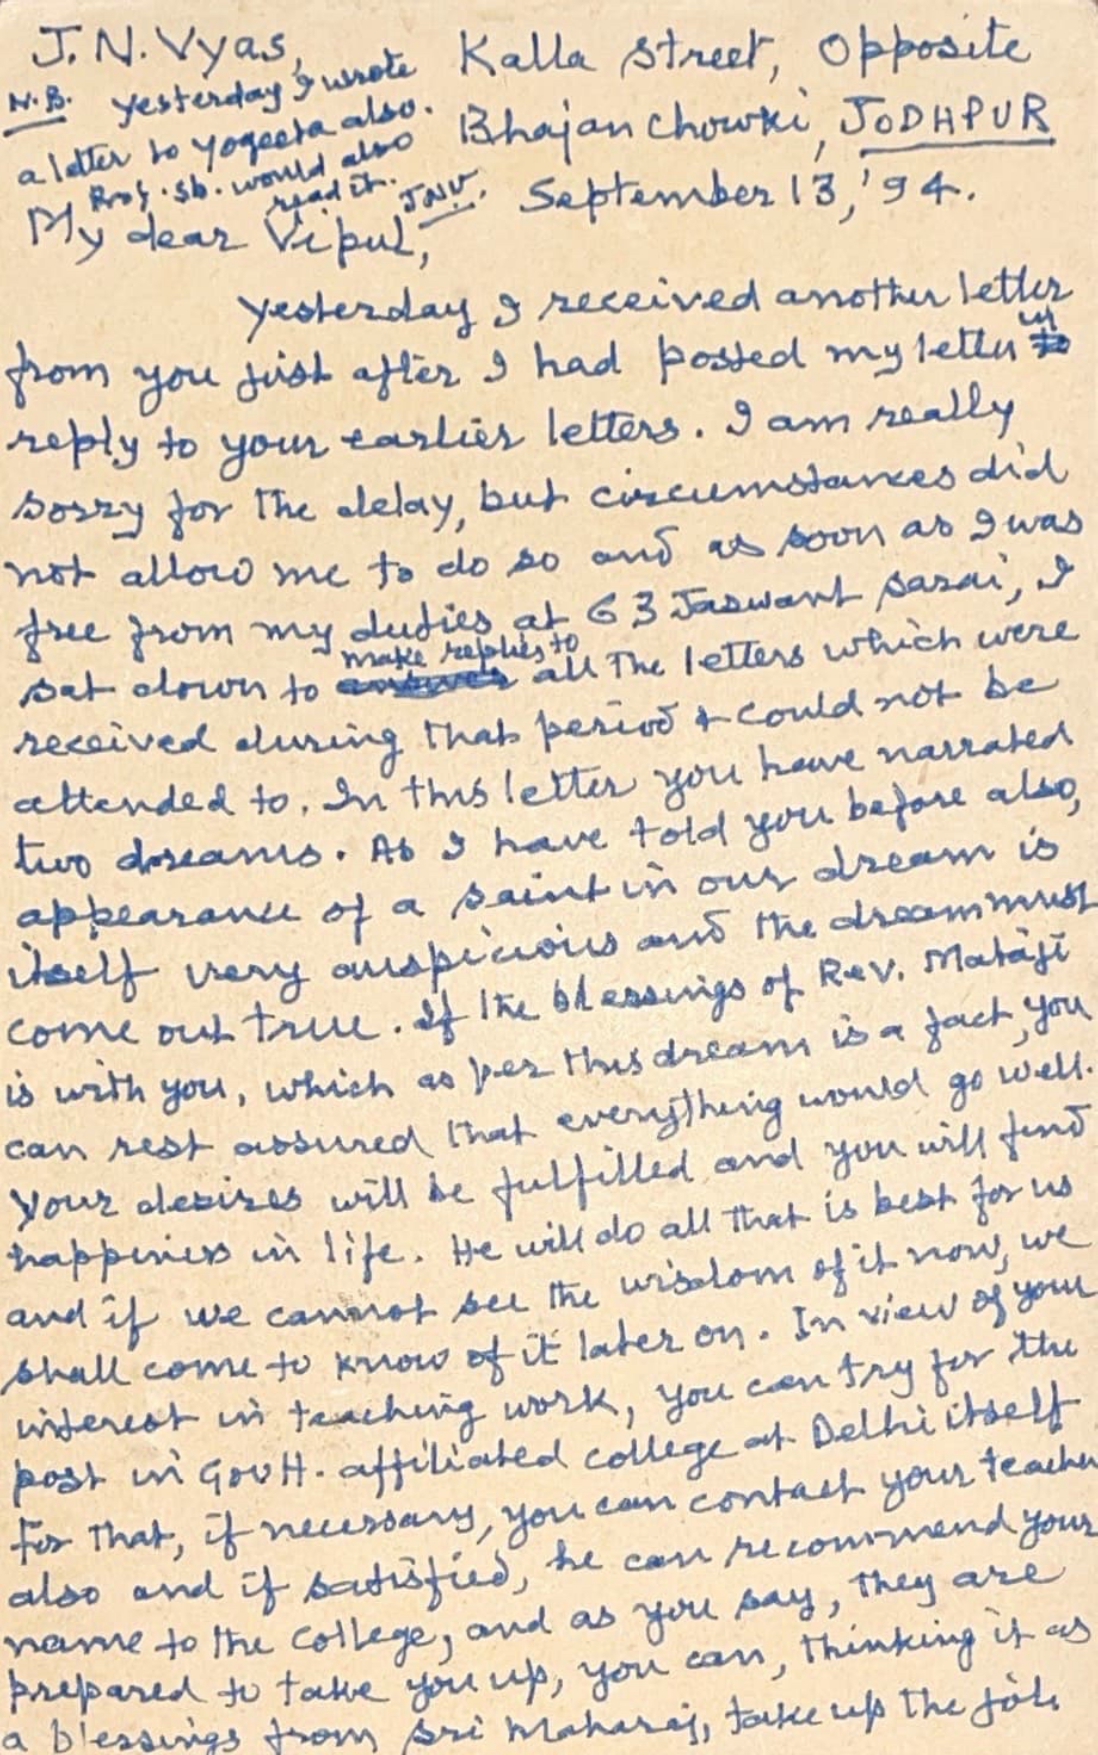 J.N.Vyas,
Kalla street, Opposite
Bhajan Chowki, JODHPUR
September 13, '94.
N.B. Yesterday I wrote
a letter to Yogeeta also.
Prof. Sb. would also
read it. J.N.V.
My dear Vipul,
Yesterday I received another letter
from you just after I had posted my letter in
reply to your earlier letters. I am really
sorry for the delay, but circumstances did
not allow me to do so and as soon as I was
free from my duties at 63 Jaswant Sarai, I
sat down to make replies to all the letters which were
received during that period & could not be
attended to. In this letter you have narrated
two dreams. As I have told you before also,
appearance of a saint in our dream is
itself very auspicious and the dream must
come out true. If the blessings of Rev. Matáji
is with you, which as per this dream is a fact, you
can rest assured that everything would go well.
Your desires will be fulfilled and you will find
happiness in life. He will do all that is best for us
and if we cannot see the wisdom of it now, we
shall come to know of it later on. In view of your
interest in teaching work, you can try for the
post in Govt. affiliated college at Delhi itself
For that, if necessary, you can contact your teacher
also and if satisfied, he can recommend your
name to the College, and as you say, they are
prepared to take you up, you can, thinking it as
a blessings from Sri Maharaj, take up the job.